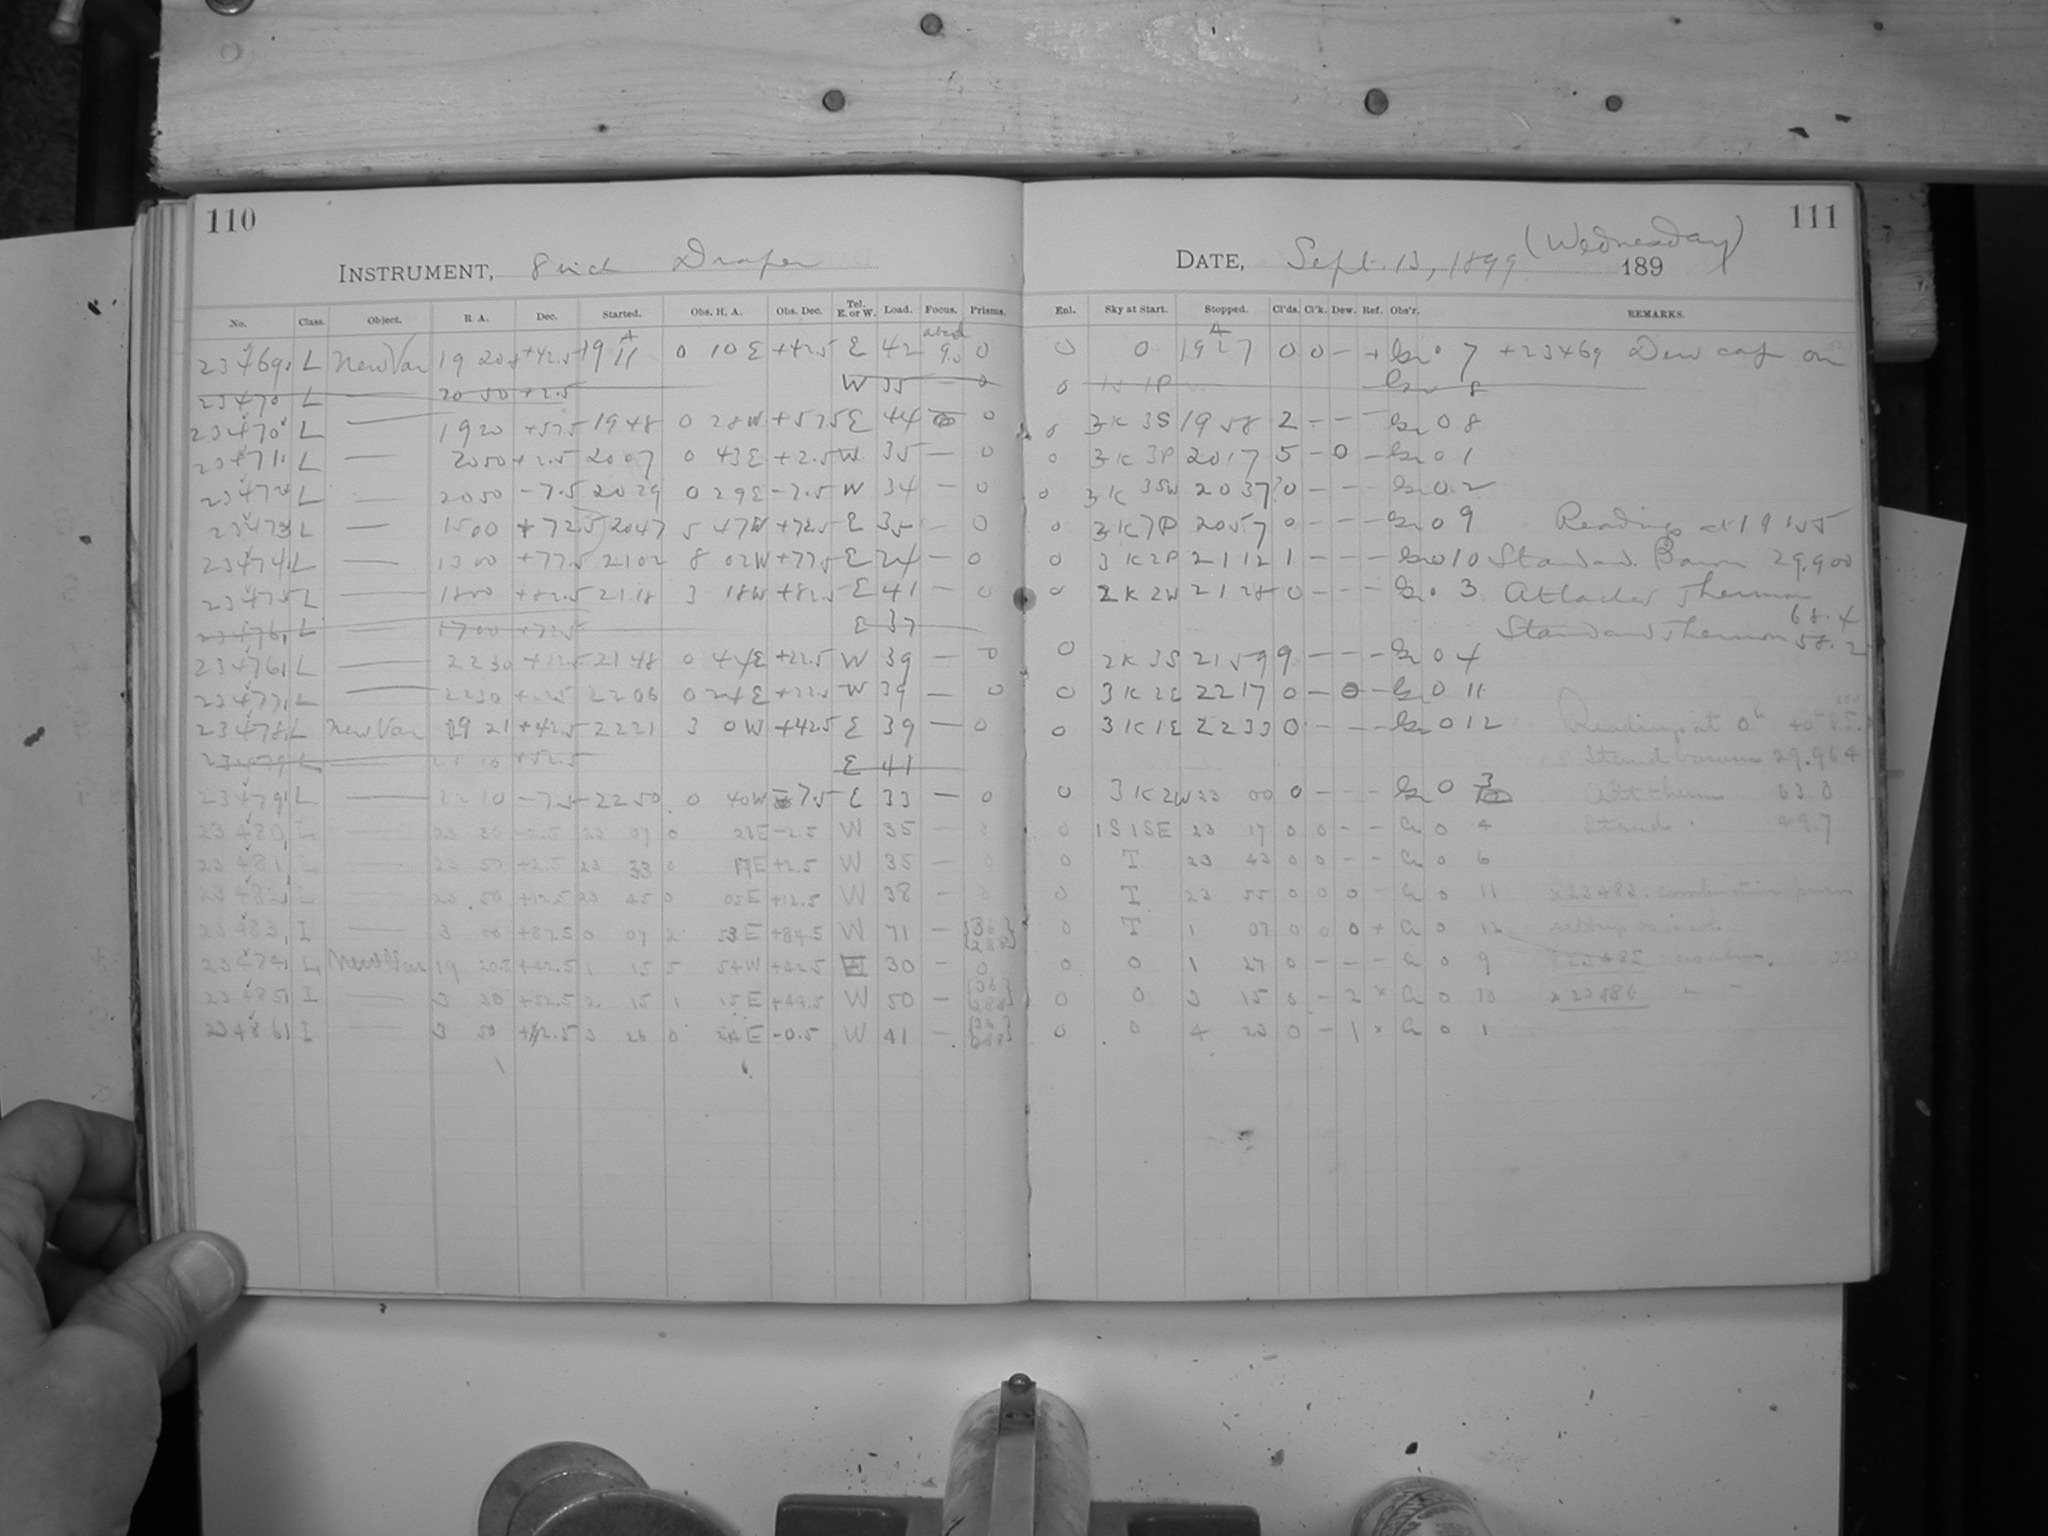 110
INSTRUMENT, 8 inch Draper
No. Class. Object. R. A. Dec. Started. Obs. H. A. Obs. Dec. Tel. E. or W. Load. Focus. Prisms.
23469. L New Var 19 20.8 +42.5 19 11 0 10 E +42.5 E 42 9.0 0
23470 L — 20 50 +2.5 W 35 — 0
23470 L — 19 20 +57.5 19 48 0 28 W +57.5 E 44 0
23471. L — 20 50 +2.5 20 07 0 43 E +2.5 W 35 — 0
23472 L — 20 50 -7.5 20 29 0 29 E -7.5 W 34 — 0
23473 L — 15 00 +72.5 20 47 5 47 W +72.5 E 35 — 0
23474. L — 13 00 +77.5 21 02 8 02 W +77.5 E 24 — 0
23475 L — 18 00 +82.5 21 18 3 18 W +82.5 E 41 — 0
23476. L — 17 00 +72.5 E 37 —
23476. L — 22 30 +22.5 21 48 0 44 E +22.5 W 39 — 0
23477. L — 22 30 +22.5 22 06 0 24 E +22.5 W 39 — 0
23478. L New Var 19 21 +42.5 22 21 3 0 W +42.5 E 39 — 0
23479 L +52.5 E 41
23479. L — 22 10 -7.5 22 50 0 40 W -7.5 E 33 — 0
23480, L — 23 30 -2.5 23 07 0 23 E -2.5 W 35 — 0
23481, L — 23 50 +2.5 23 33 0 17 E +2.5 W 35 — 0
23482, L — 23 50 +12.5 23 45 0 05 E +12.5 W 38 — 0
23483, I — 3 00 +87.5 0 07 2 53 E +84.5 W 71 — {36 288}
23484, L New Var 19 20.8 +42.5 1 15 5 54 W +42.5 E 30 — 0
23485, I — 3 30 +52.5 2 15 1 15 E +49.5 W 50 —
23486, I — 3 50 +2.5 3 26 0 24 E -0.5 W 41 —
111
DATE, Sept. 13, 1899 (Wednesday) 189
Enl. Sky at Start. Stopped. Cl'ds. Cl'k. Dew. Ref. Obs'r. REMARKS.
0 0 19 27 0 0 – + Gr 0 7 +23469 Dew cap on
0 1S 1P Gr 0 8
0 3K 3S 19 58 2 – – – Gr 0 8
0 3K 3P 20 17 5 – 0 – Gr 0 1
0 3K 3SW 20 37 0 – – – Gr 0 2
0 3K 7P 20 57 0 – – – Gr 0 9 Readings at 19 55
0 3K 2P 21 12 1 – – – Gr 0 10 Standard Barom 29.900
0 2K 2W 21 28 0 – – – Gr 0 3 Attached Thermom
68.4
Standard Thermom 58.2
0 2K 3S 21 59 9 – – – Gr 0 4
0 3K 2E 22 17 0 – 0 – Gr 0 11
0 3K 1E 22 33 0 – – – Gr 0 12 Readings at 0h 40m
Stand barom 29.964
0 3K 2W 23 00 0 – – – Gr 0 3 Att therm 63.0
0 1S 1SE 23 17 0 0 – – G 0 4 Stand " 49.7
0 T 23 43 0 0 – – G 0 6
0 T 23 55 0 0 0 – G 0 11 x23483. combination prism
0 T 1 07 0 0 0 + G 0 12
0 0 1 27 0 – – – G 0 9 x23485
0 0 3 15 0 – 2 x G 0 10 x23486 " "
0 0 4 23 0 – 1 x G 0 1